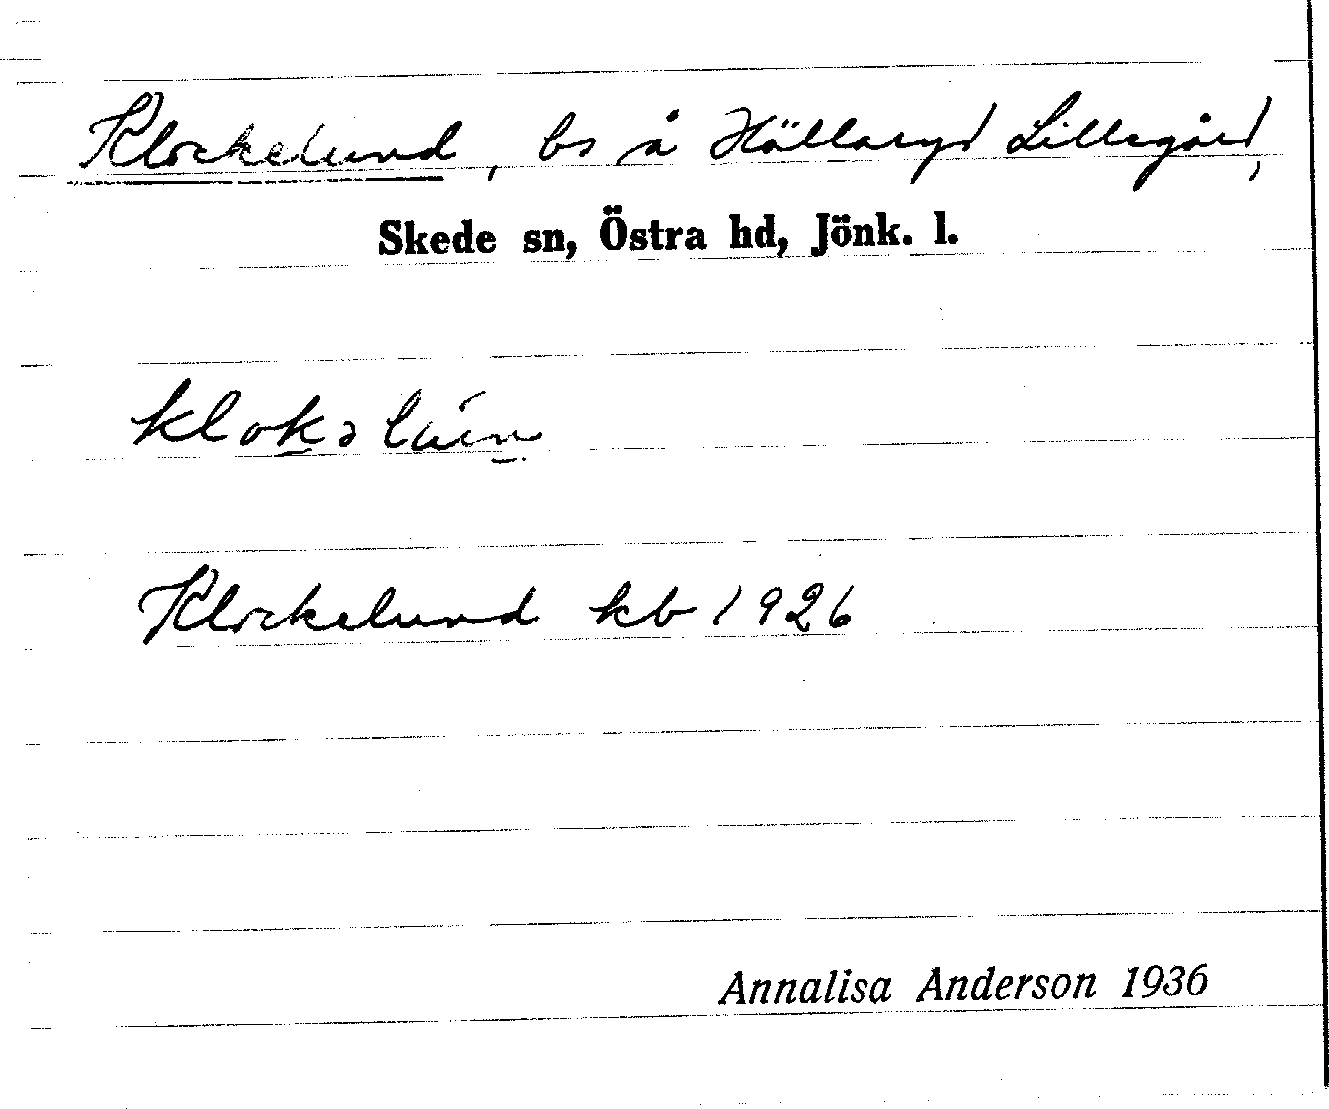 Klockelund, bs å Hällaryd Lillegård,
Skede sn, Östra hd, Jönk. l.
Klockelund kb 1926
Annalisa Anderson 1936